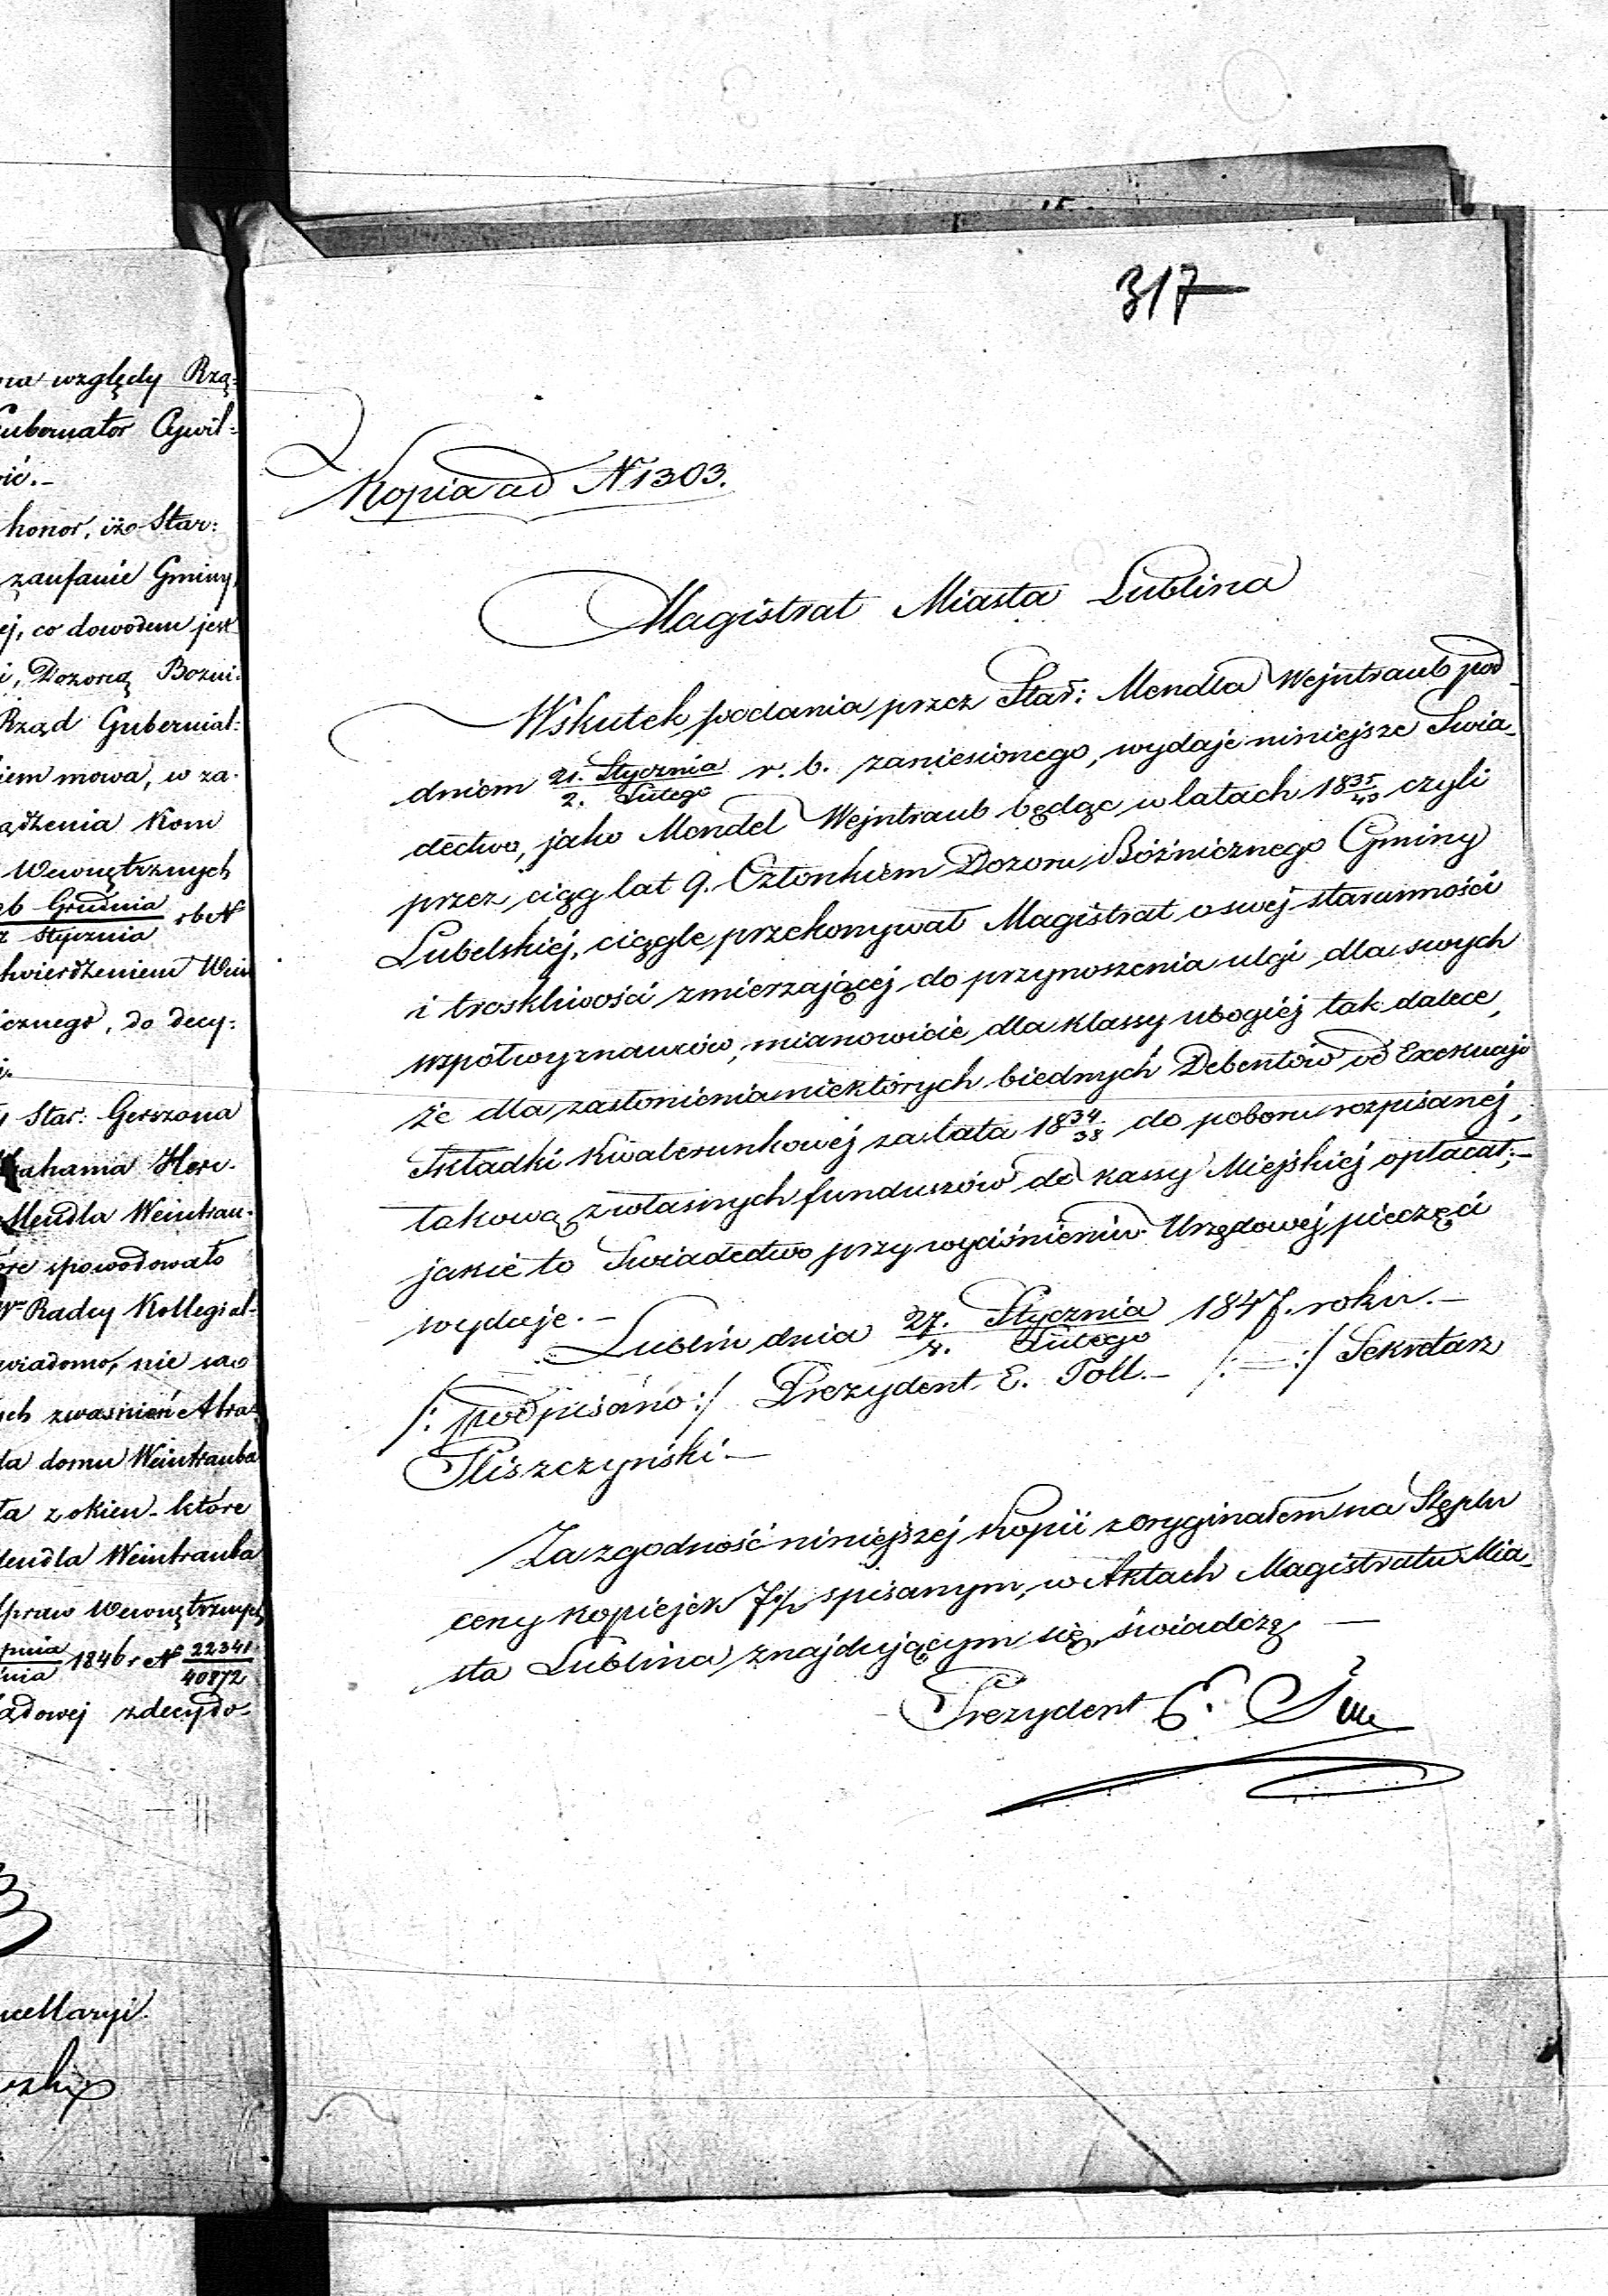 na względy Rzą=
Gubernator Cywil=
ić.-
honor, iż Star:
zaufanie Gminy,
ej, co dowodem jest
i, Dozorcą Bozni=
Rząd Gubernial=
iem mowa, w za=
ądzenia Kom
Wewnętrznych
26 Grudnia
Stycznia rb N
twierdzeniem Wein
icznego, do decy=
Star: Gerszona
Abrahama Her
Mendla Weintrau=
óre spowodowało
Wo Radcy Kollegial=
wiadomo, nie są
ych zwasnień Abra=
da domu Weintrauba
ła z okien – które
Mendla Weintrauba
Spraw Wewnętrznych
pnia
nia 1846 r N 22341
40872
ądowej zdecydo
ncellaryi
317
Kopia ad N 1303.
Magistrat Miasta Lublina
Wskutek podania przez Star: Mendla Wejntraub pod
dniem 21. Stycznia
2. Lutego r. b. zaniesionego, wydaje niniejsze Swia=
dectwo, jako Mendel Wejntraub będąc w latach 18 35/43 czyli
przez ciąg lat 9. Członkiem Dozoru Bóźnicznego Gminy
Lubelskiéj, ciągle przekonywał Magistrat o swéj staranności
i troskliwości zmierzającéj do przynoszenia ulgi dla swych
współwyznawców, mianowicie dla klassy ubogiéj tak dalece,
że dla zasłonienia niektórych biednych Debentów od Exekucji
Składki Kwaterunkowéj za lata 18 34/38 do poboru rozpisanéj,
takową z własnych funduszów do kassy Miejskiéj opłacał;–
jakie to Swiadectwo przy wyciśnieniu Urzędowéj pieczęci
wydaje.–
Lublin dnia 27. Stycznia
8. Lutego 1847. roku.–
/: podpisano :/ Prezydent E. Toll.– /: — :/ Sekretarz
Pliszczyński –
Za zgodność niniejszéj Kopii z oryginałem na Stęplu
ceny kopiejek 7½ spisanym, w Aktach Magistratu Mia=
sta Lublina znajdującym się, świadczę –
Prezydent E.